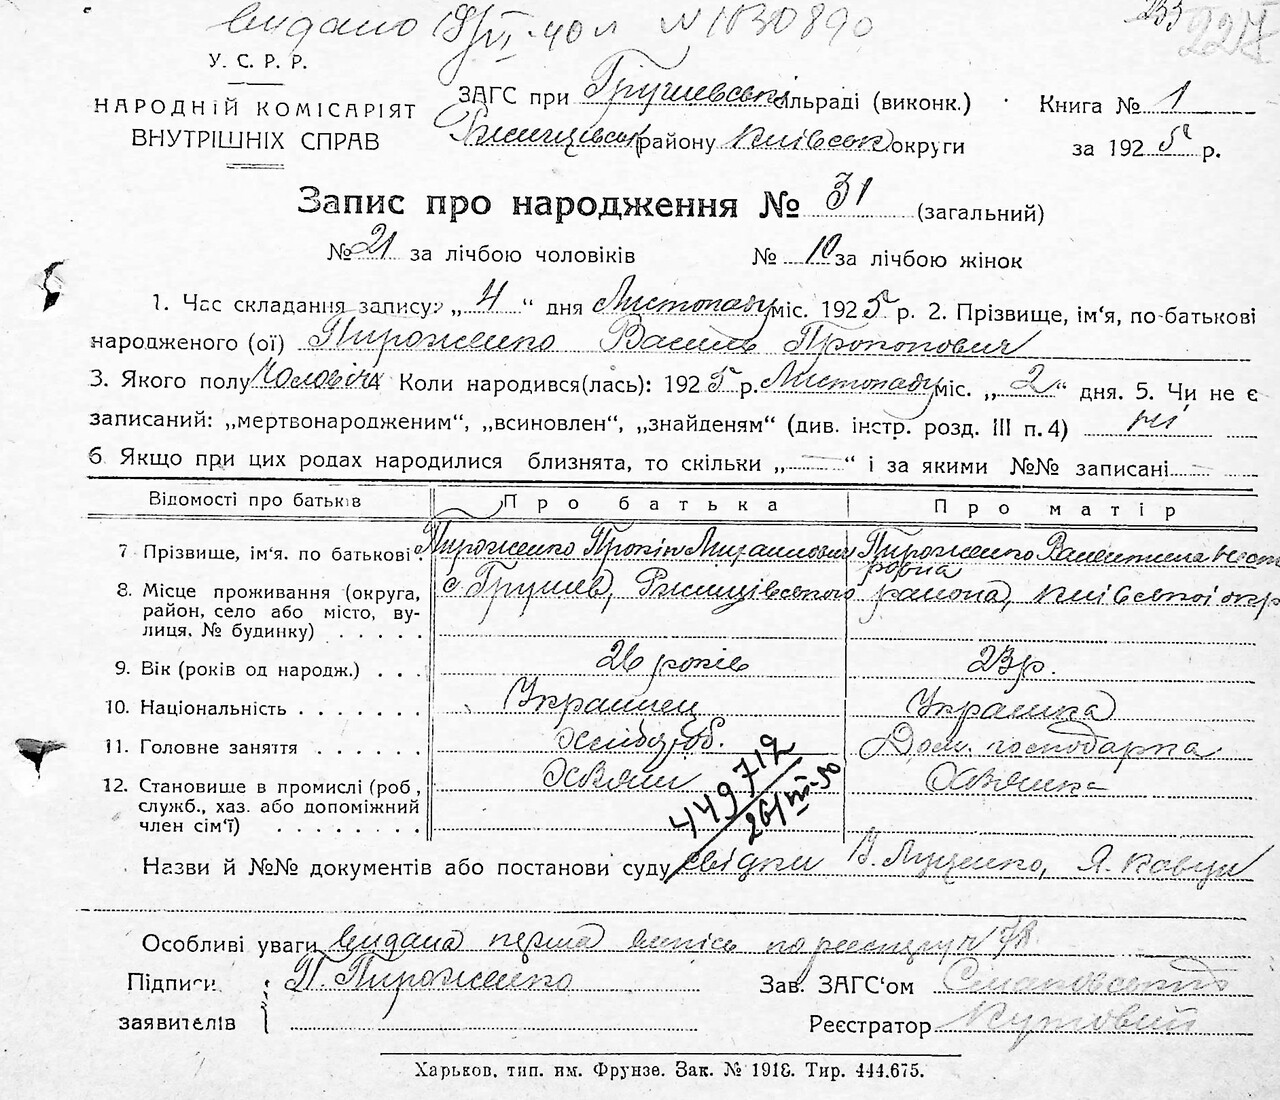 видано 19/VI-40 л N 1030890
233
У. С. Р. Р.
НАРОДНІЙ КОМІСАРІЯТ
ВНУТРІШНІХ СПРАВ
ЗАГС при Грушевській сільраді (виконк.)
Ржищівськ району Київськ округи
Книга № 1
за 1925 р.
Запис про народження № 31 (загальний)
№ 21 за лічбою чоловіків № 10 за лічбою жінок
1. Час складання запису: „ 4 “ дня Листопаду міс. 1925 р. 2. Прізвище, ім'я, по-батькові
народженого (ої) Пироженко Василь Прокопович
3. Якого полу Чоловіч. 4 Коли народився(лась): 1925 р. Листопаду міс. „ 2 “ дня. 5. Чи не є
записаний: „мертвонародженим“, „всиновлен“, „знайденям“ (див. інстр. розд. III п. 4) ні
6. Якщо при цих родах народилися близнята, то скільки „ — “ і за якими №№ записані —
Відомості про батьків Про батька Про матір
7 Прізвище, ім'я. по батькові Пироженко Прокіп Михайлович Пироженко Валентина Несторовна
8. Місце проживання (округа, район, село або місто, вулиця. № будинку) с. Грушев, Ржищівського района, Київської окр
9. Вік (років од народж.) 26 років 23 р.
10. Національність Украінец Украінка
11. Головне заняття Хлібороб. Дом. господарка
12. Становище в промислі (роб., служб., хаз. або допоміжний член сім'ї) Хазяін Хазяйка
449712
26/VII-50
Назви й №№ документів або постанови суду свідки Луценко, Я. Ковун
Особливі уваги видана перша випісь по реестру № 78.
Підписи П. Пироженко Зав. ЗАГС'ом
заявителів Реєстратор Кутовий
Харьков, тип. им. Фрунзе. Зак. № 1918. Тир. 444.675.